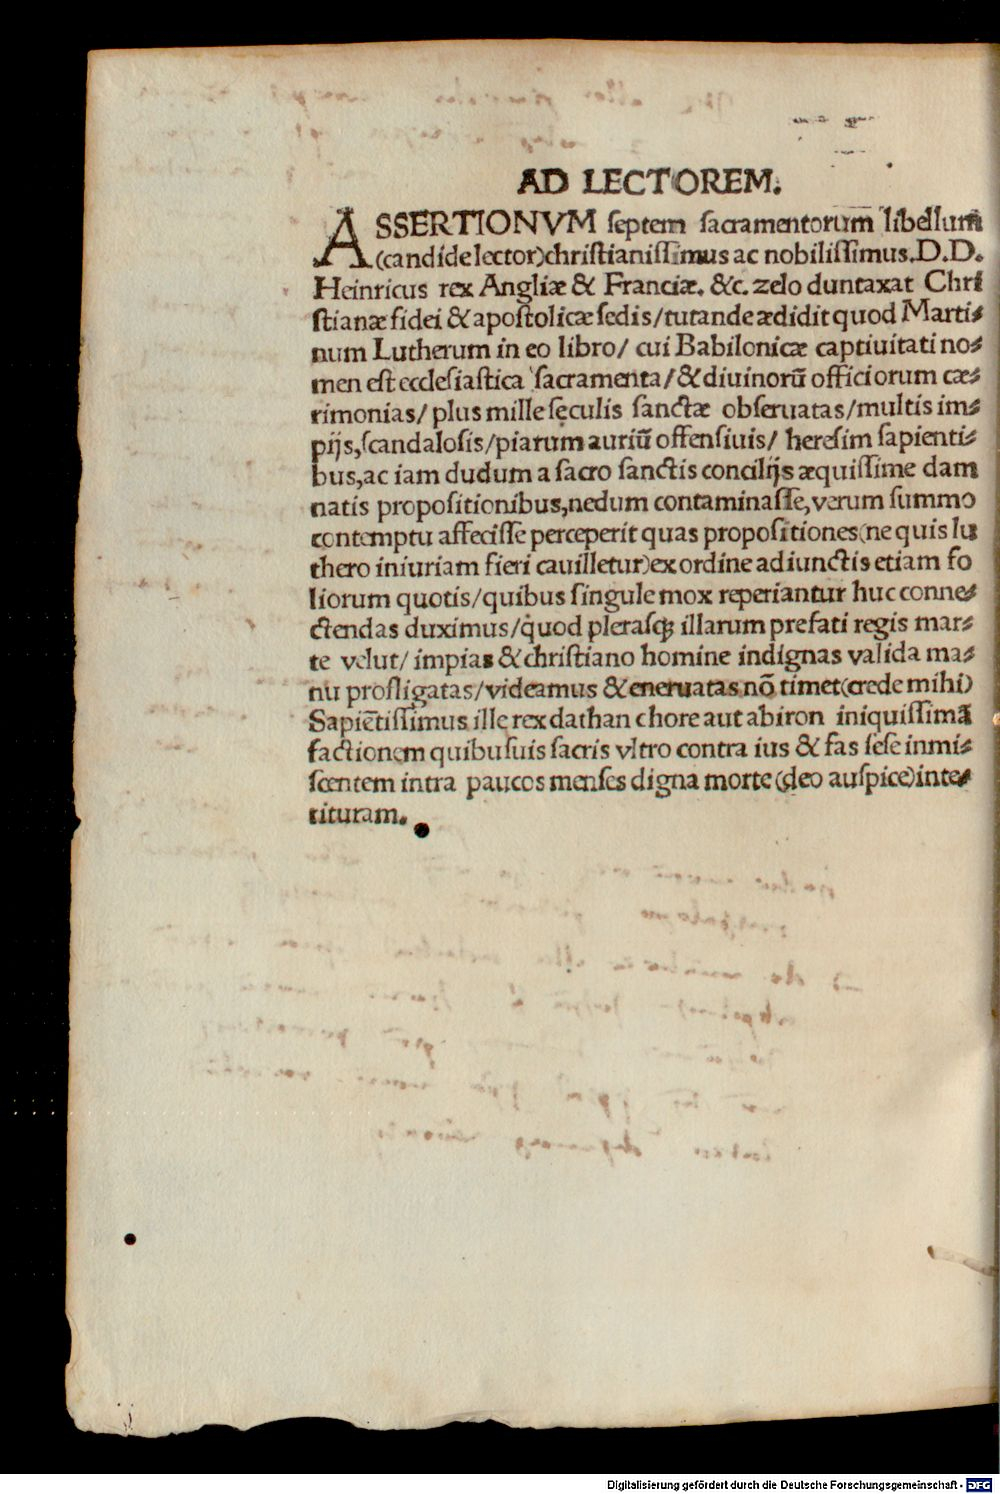 AD LECTOREM.
ASSERTIONVM ſeptem ſacramentorum libellum
(candide lector)chriſtianiſſimus ac nobiliſſimus.D.D.
Heinricus rex Angliæ & Franciæ. &c. zelo duntaxat Chri
ſtianæ fidei & apoſtolicæ ſedis/tutande ædidit quod Marti⸗
num Lutherum in eo libro/ cui Babilonicæ captiuitati no⸗
men eſt eccleſiaſtica ſacramenta/&diuinorū officiorum cæ⸗
rimonias/ plus mille ſęculis ſanctæ obſeruatas/multis im⸗
pijs,ſcandaloſis/piarum auriū offenſiuis/ hereſim ſapienti⸗
bus,ac iam dudum a ſacro ſanctis concilijs æquiſſime dam
natis propoſitionibus,nedum contaminaſſe,verum ſummo
contemptu affeciſſe perceperit quas propoſitiones(ne quis lu
thero iniuriam fieri cauilletur)ex ordine adiunctis etiam fo
liorum quotis/quibus ſingule mox reperiantur huc conne⸗
ctendas duximus/q̇uod pleraſqꝫ illarum prefati regis mar⸗
te velut/ impias & chriſtiano homine indignas valida ma⸗
nu profligatas/videamus & eneruatas nō timet(crede mihi)
Sapiētiſſimus ille rex dathan chore aut abiron iniquiſſimā
factionem quibuſuis ſacris vltro contra ius & fas ſeſe inmi⸗
ſcentem intra paucos menſes digna morte (deo auſpice)inte⸗
rituram.
Digitalisierung gefördert durch die Deutsche Forschungsgemeinschaft - DFG